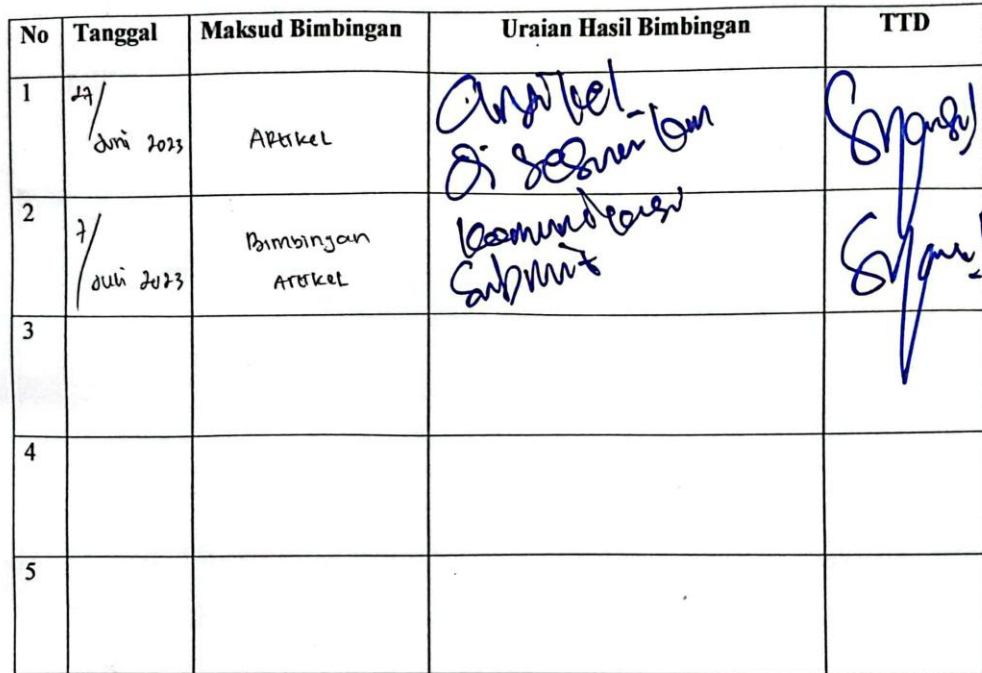 No Tanggal Maksud Bimbingan Uraian Hasil Bimbingan TTD
1 27/ Juni 2023 Artikel Artikel
di sesuaikan
2 7/ Juli 2023 Bimbingan Artikel
Submit
3
4
5